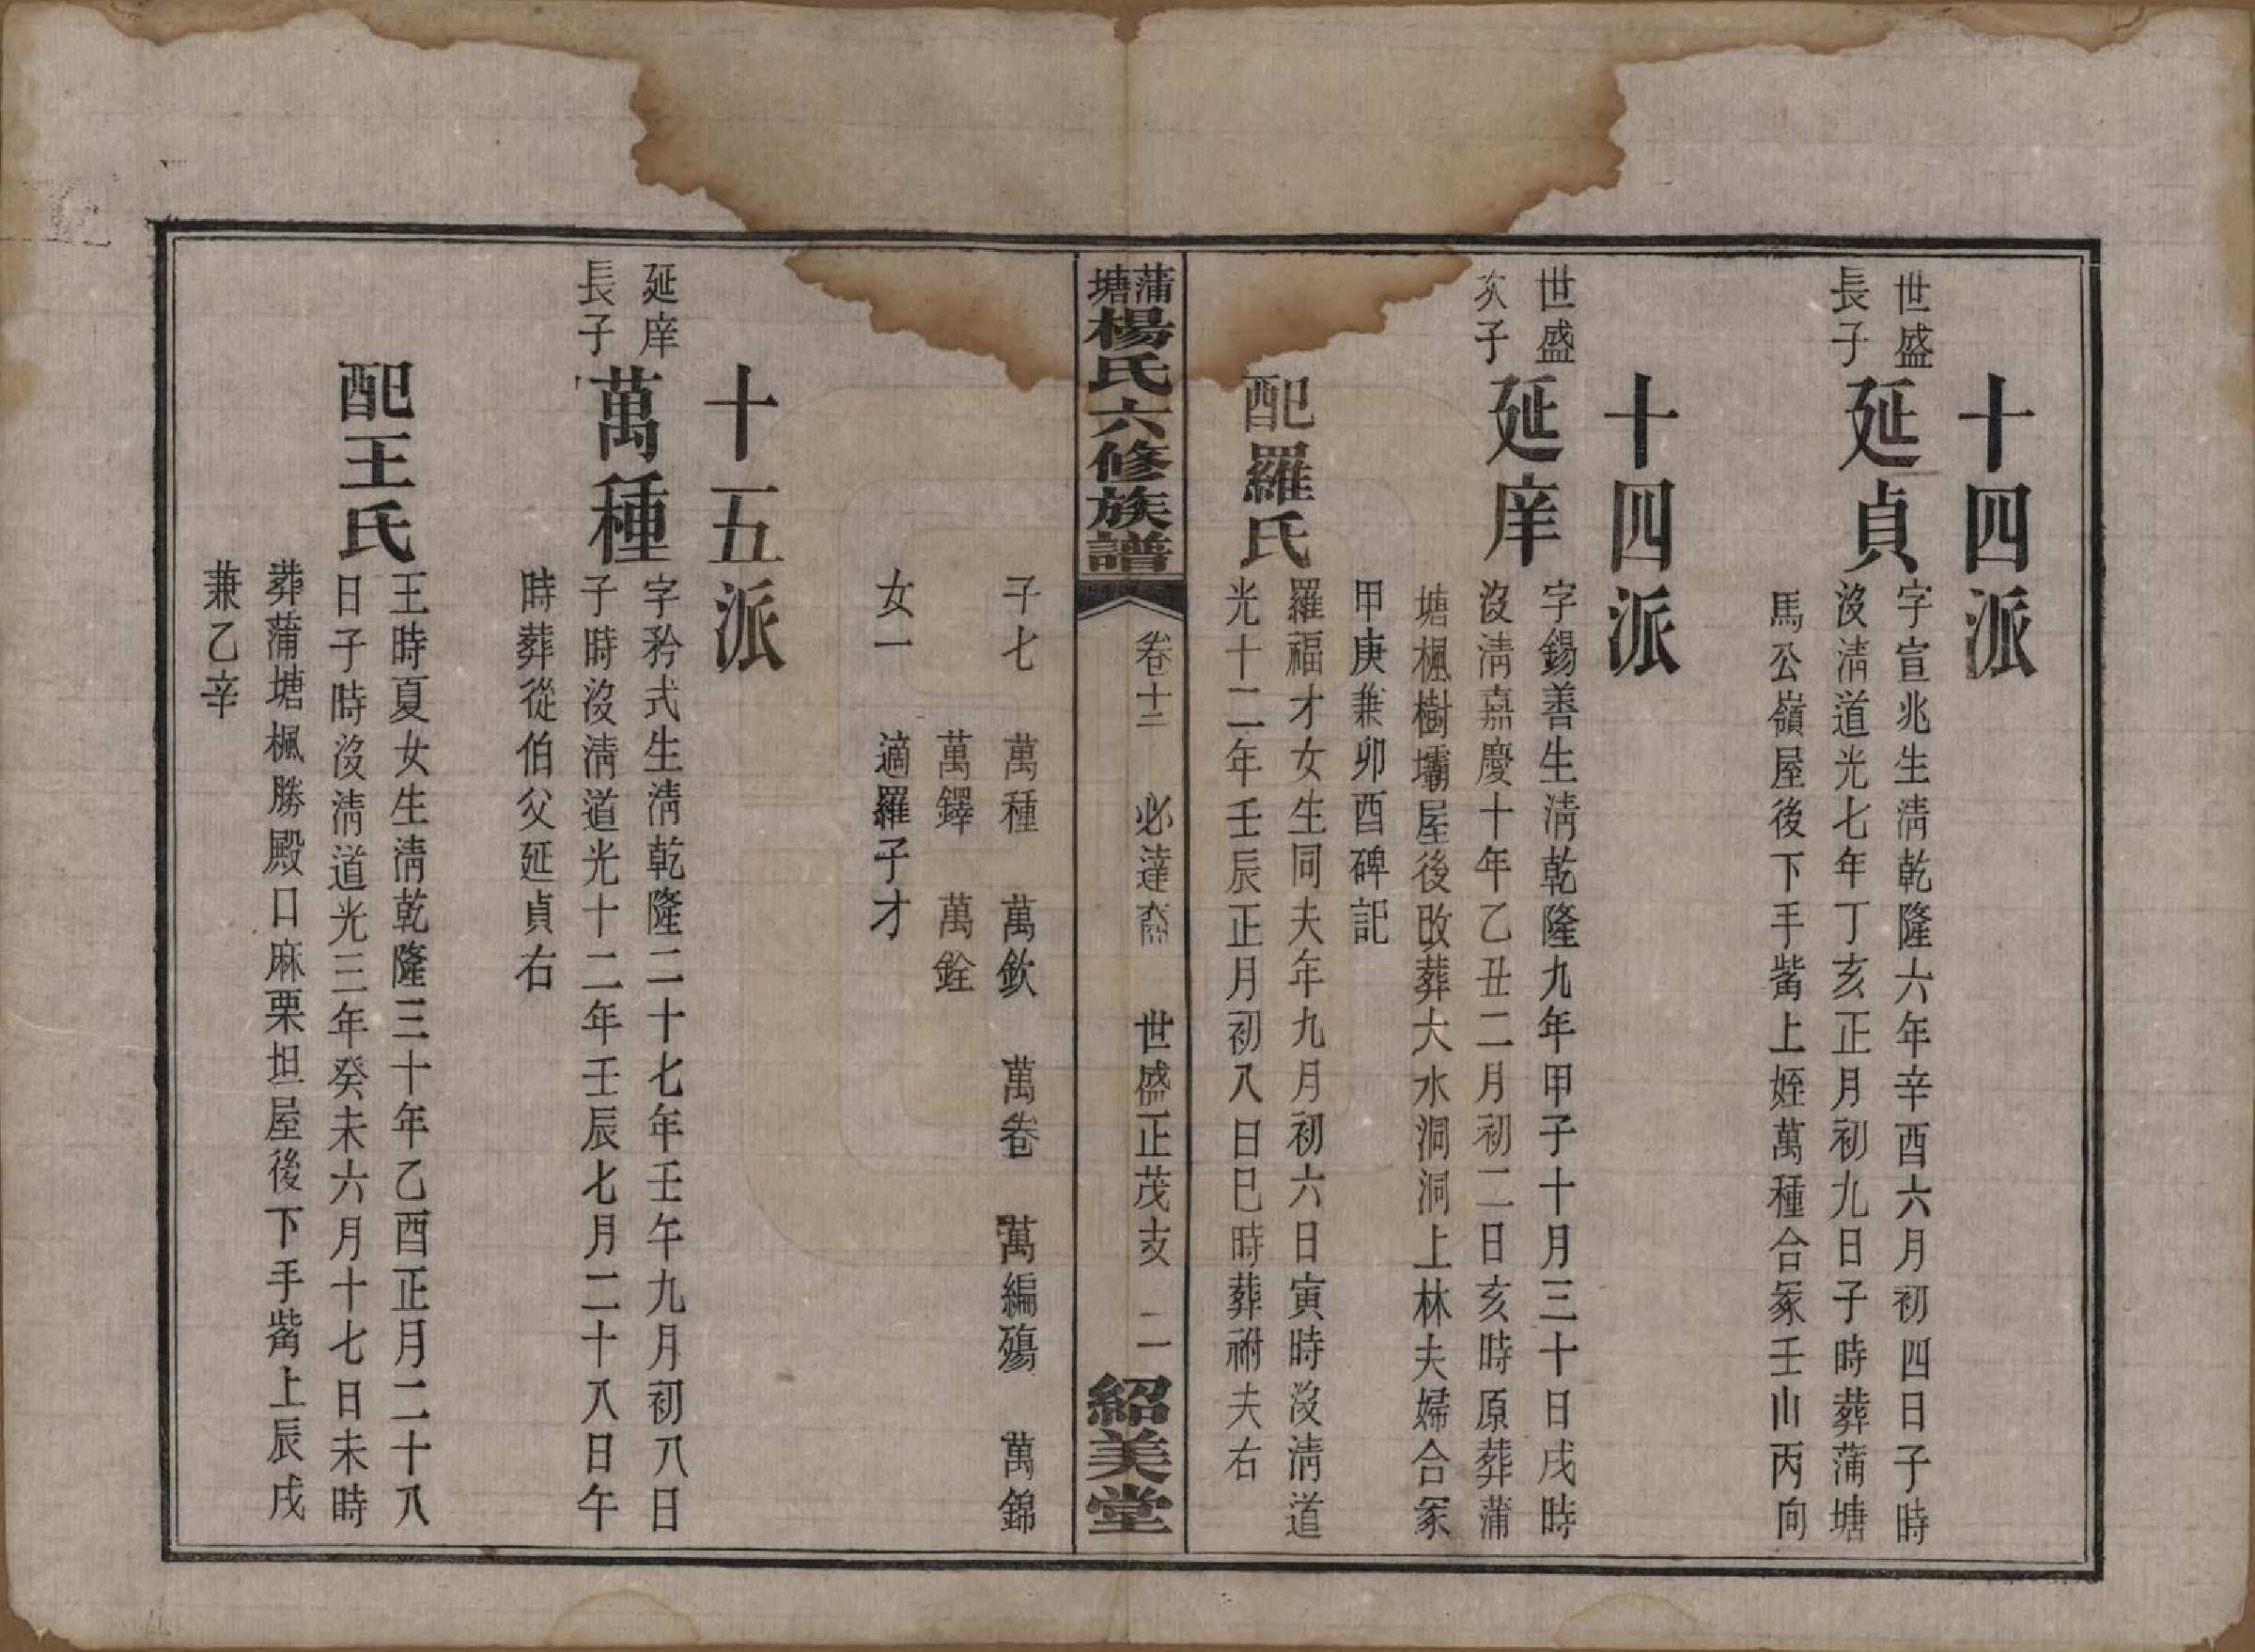 十四派
世盛
長子
延貞
字宣兆生淸乾隆六年辛酉六月初四日子時
沒淸道光七年丁亥正月初九日子時葬蒲塘
馬公嶺屋後下手觜上姪萬種合冢壬山丙向
十四派
世盛
次子
延庠
字錫善生淸乾隆九年甲子十月三十日戌時
沒淸嘉慶十年乙丑二月初二日亥時原葬蒲
塘楓樹壩屋後改葬大水洞洞上林夫婦合冢
甲庚兼卯酉碑記
配羅氏
羅福才女生同夫年九月初六日寅時沒淸道
光十二年壬辰正月初八日巳時葬祔夫右
蒲塘楊氏六修族譜
卷十二 必達裔 世盛正茂支 二
紹美堂
子七 萬種 萬欽 萬卷 萬編殤 萬錦
萬鐸 萬銓
女一 適羅子才
十五派
延庠
長子
萬種
字矜式生淸乾隆二十七年壬午九月初八日
子時沒淸道光十二年壬辰七月二十八日午
時葬從伯父延貞右
配王氏
王時夏女生淸乾隆三十年乙酉正月二十八
日子時沒淸道光三年癸未六月十七日未時
葬蒲塘楓勝殿口麻栗坦屋後下手觜上辰戌
兼乙辛